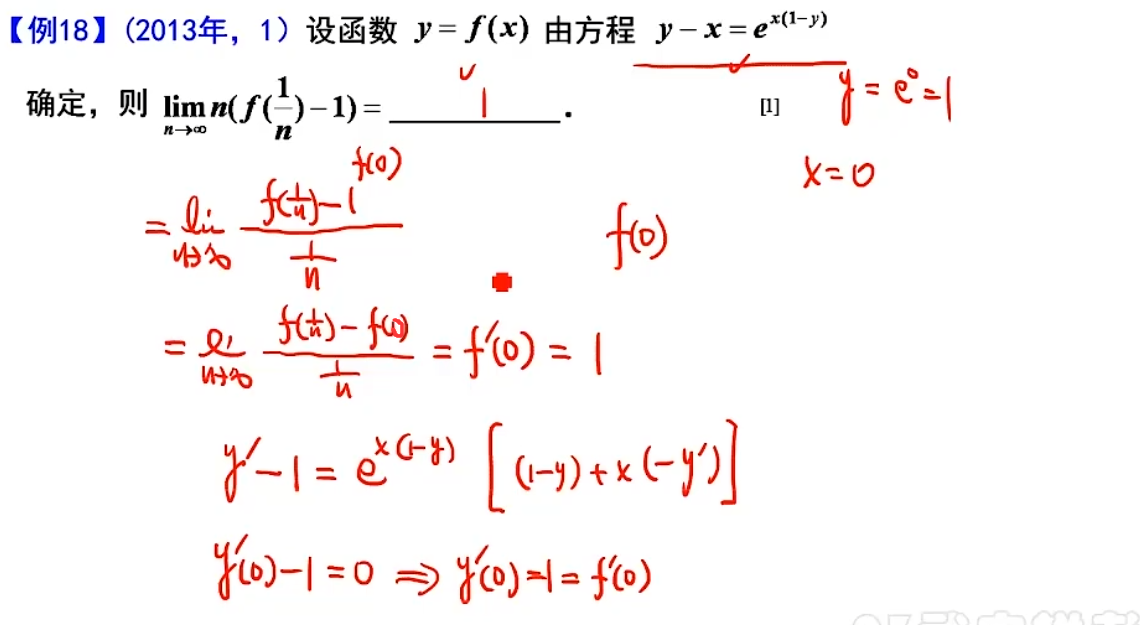 【例18】(2013年，1) 设函数 y = f(x) 由方程 y − x = e^{x(1−y)}
确定，则 lim_{n→∞} n(f(1/n) − 1) = ____1____ .
[1]
y = e^0 = 1
x = 0
f(0)
= lim_{n→∞} (f(1/n) − 1) / (1/n)
f(0)
= lim_{n→∞} (f(1/n) − f(0)) / (1/n) = f′(0) = 1
y′ − 1 = e^{x(1−y)} [(1−y) + x(−y′)]
y′(0) − 1 = 0 ⇒ y′(0) = 1 = f′(0)